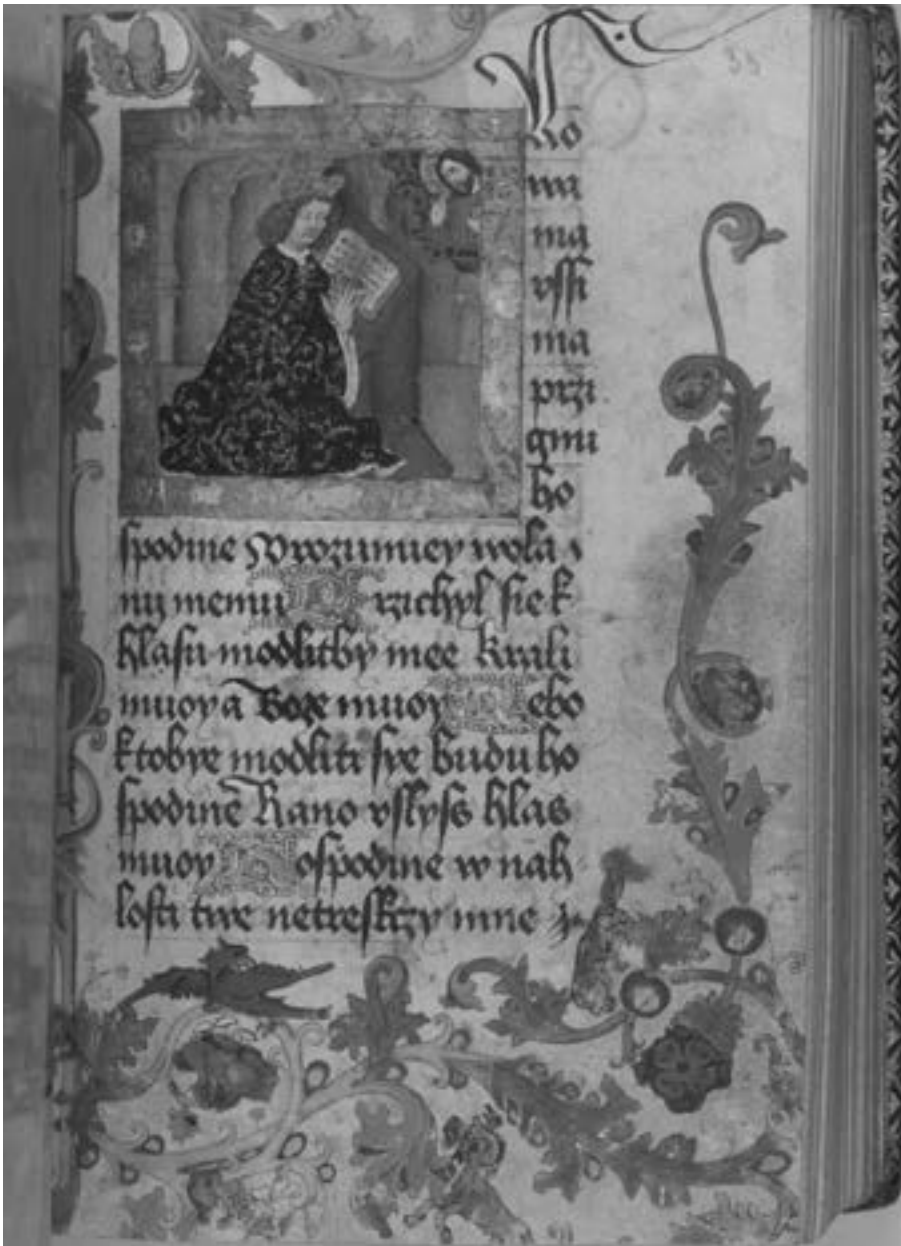 33
no
wa
ma
vssi
ma
przi
gmi
ho
spodine Wrozumiey wola
ny memu Przichyl sie k
hlasu modlitby mee Krali
muoy a Boze muoy Nebo
k tobye modliti sye budu ho
spodine Rano vslyss hlas
muoy Hospodine w nah
losti twe netreskczy mne